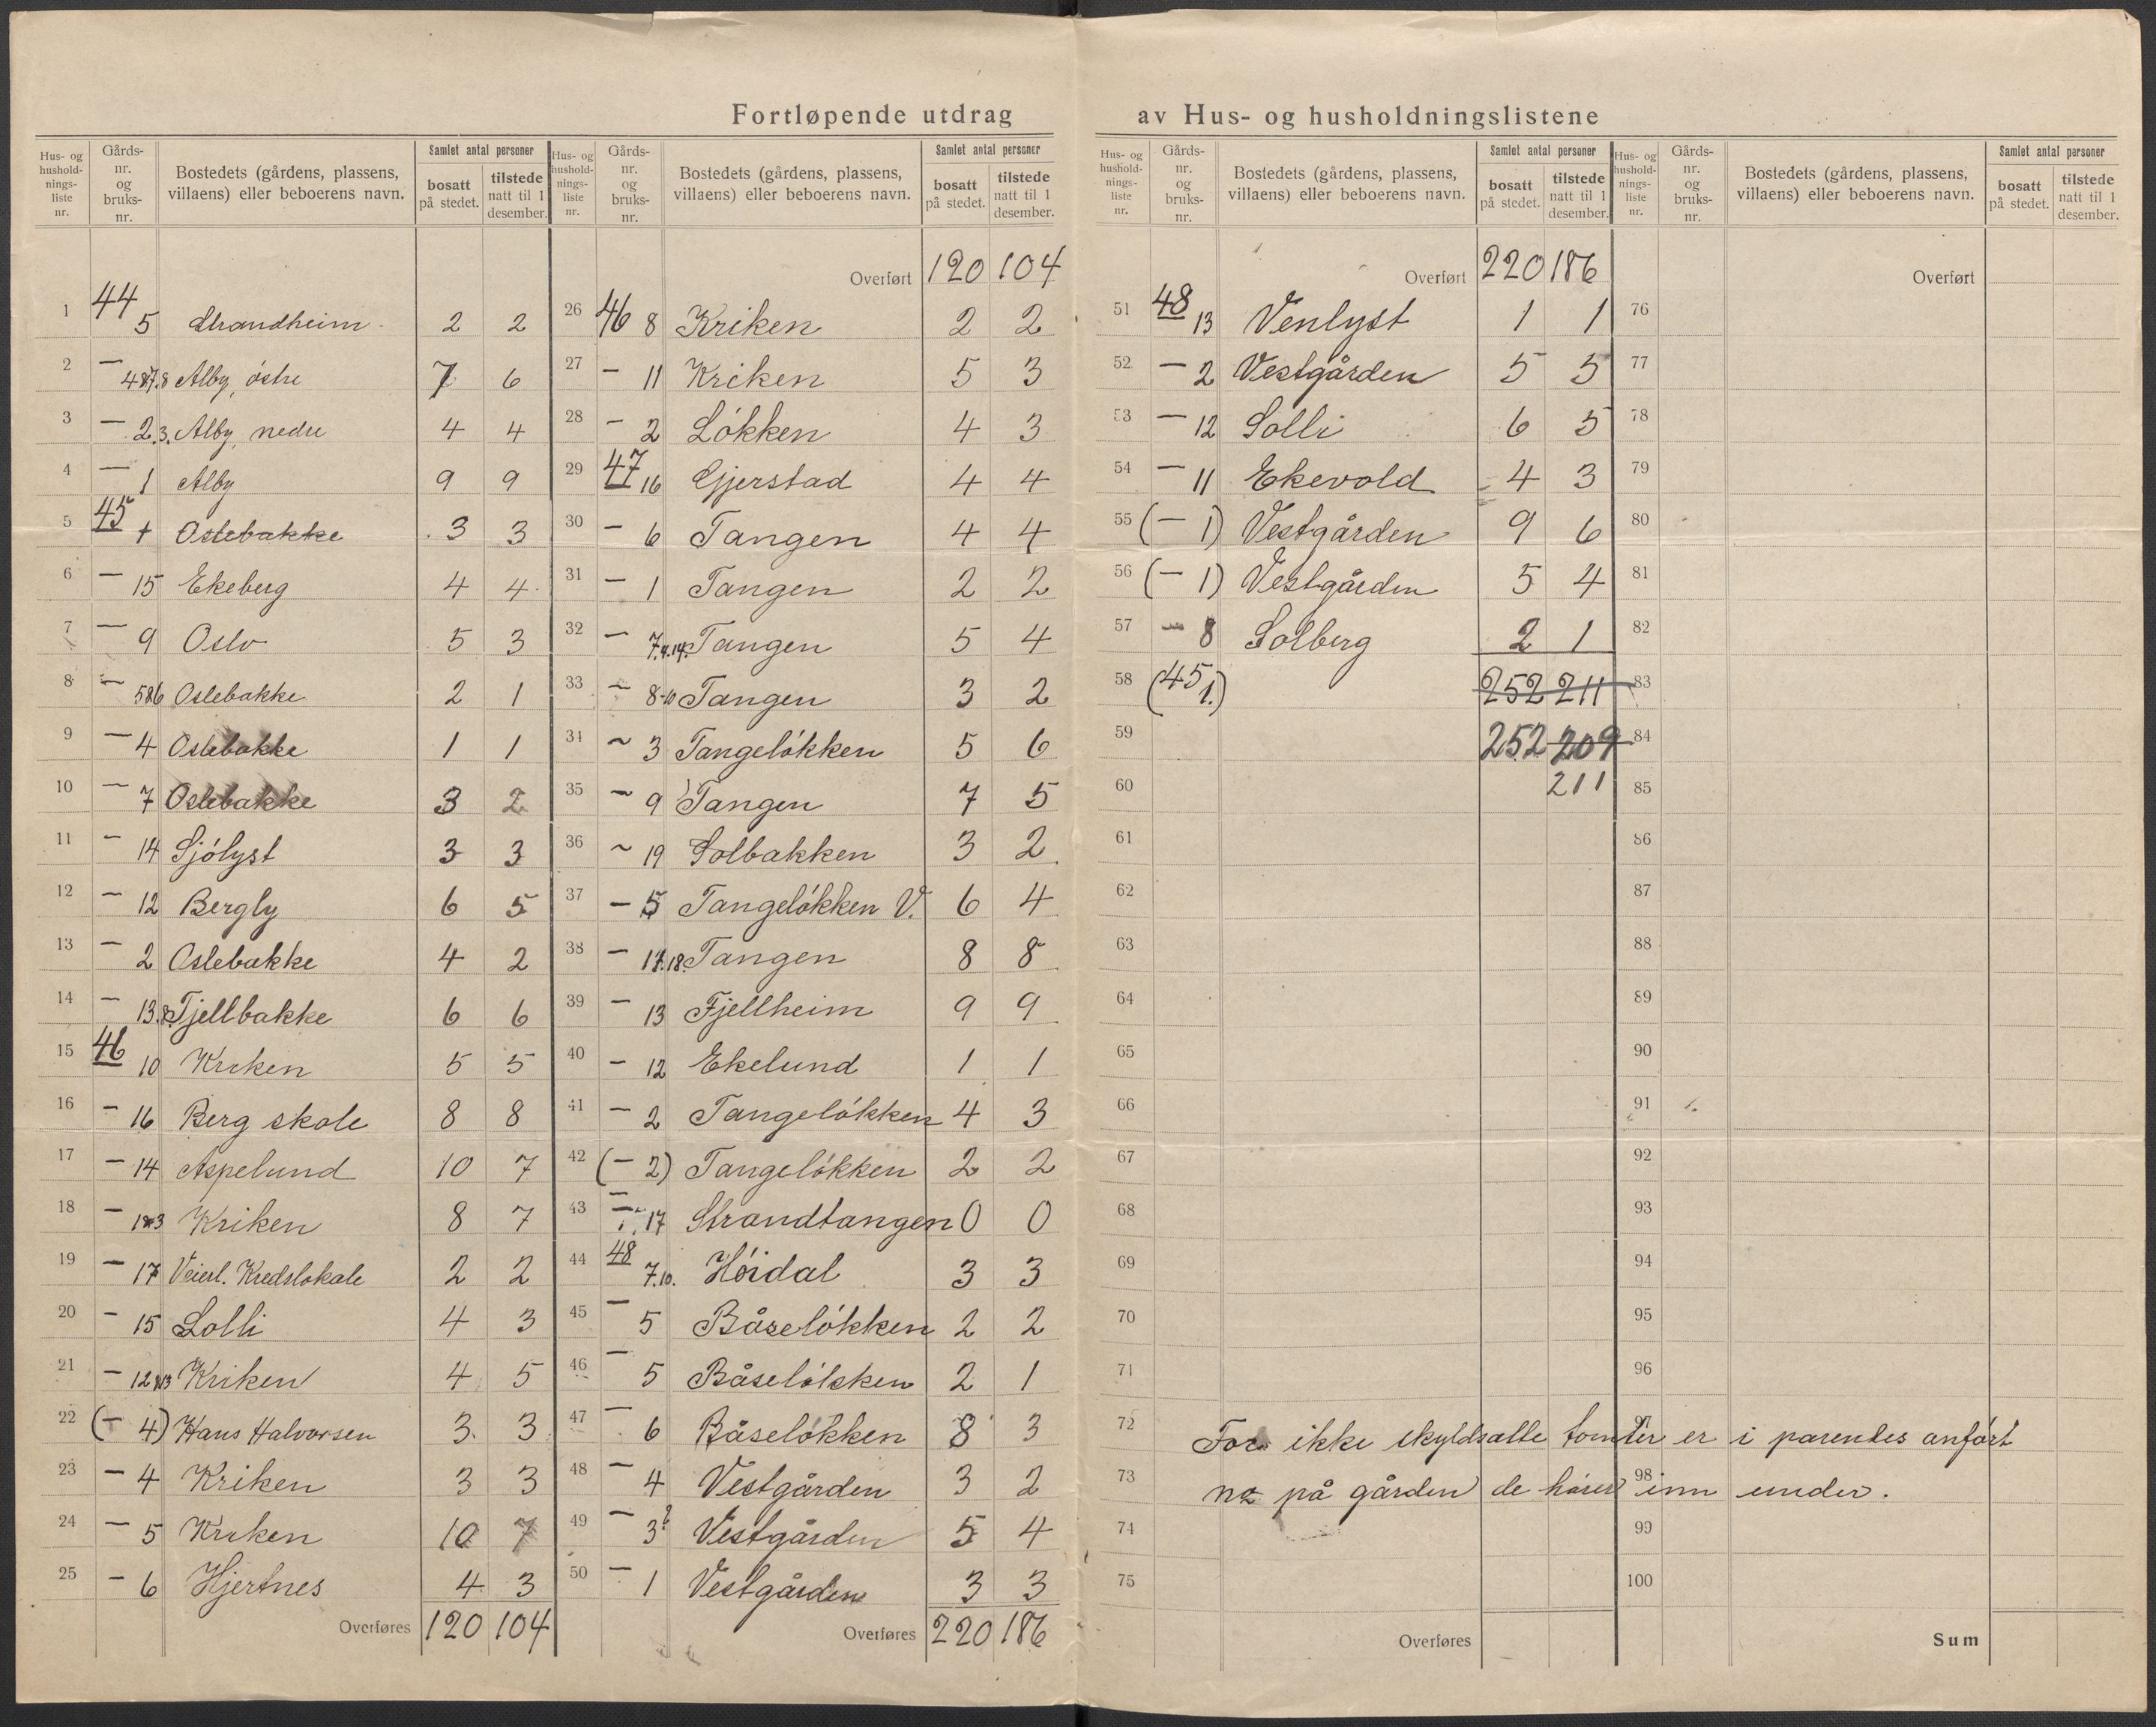 Fortløpende utdrag av Hus- og husholdningslistene
Hus- og husholdnings-liste nr. | Gårds-nr. og bruks-nr. | Bostedets (gårdens, plassens, villaens) eller beboerens navn. | Samlet antal personer | bosatt på stedet. | tilstede natt til 1 desember.
1 44 5 Strandheim 2 2
2 — 4&7.8 Alby, östre 7 6
3 — 2.3. Alby, nedre 4 4
4 — 1 Alby 9 9
5 45 1 Oslebakke 3 3
6 — 15 Ekeberg 4 4
7 — 9 Oslo 5 3
8 — 5&6 Oslebakke 2 1
9 — 4 Oslebakke 1 1
10 — 7 Oslebakke 3 2
11 — 14 Sjölyst 3 3
12 — 12 Bergly 6 5
13 — 2 Oslebakke 4 2
14 — 13.8 Fjellbakke 6 6
15 46 10 Kriken 5 5
16 — 16 Berg skole 8 8
17 — 14 Aspelund 10 7
18 — 1&3 Kriken 8 7
19 — 17 Veierl. Kredslokale 2 2
20 — 15 Solli 4 3
21 — 12&13 Kriken 4 5
22 (— 4) Hans Halvorsen 3 3
23 — 4 Kriken 3 3
24 — 5 Kriken 10 7
25 — 6 Hjertnes 4 3
Overføres 120 104
Hus- og husholdnings-liste nr. | Gårds-nr. og bruks-nr. | Bostedets (gårdens, plassens, villaens) eller beboerens navn. | Samlet antal personer | bosatt på stedet. | tilstede natt til 1 desember.
Overført 120 104
26 46 8 Kriken 2 2
27 — 11 Kriken 5 3
28 — 2 Lökken 4 3
29 47 16 Gjerstad 4 4
30 — 6 Tangen 4 4
31 — 1 Tangen 2 2
32 — 7.4.14. Tangen 5 4
33 — 8-10 Tangen 3 2
34 ~ 3 Tangelökken 5 6
35 ~ 9 Tangen 7 5
36 ~ 19 Solbakken 3 2
37 — 5 Tangelökken V. 6 4
38 — 17.18. Tangen 8 8
39 — 13 Fjellheim 9 9
40 — 12 Ekelund 1 1
41 — 2 Tangelökken 4 3
42 (— 2) Tangelökken 2 2
43 — 17 Strandtangen 0 0
44 48 7.10. Höidal 3 3
45 — 5 Båselökken 2 2
46 — 5 Båselökken 2 1
47 — 6 Båselökken 8 3
48 — 4 Vestgården 3 2
49 — 3? Vestgården 5 4
50 — 1 Vestgården 3 3
Overføres 220 186
Hus- og husholdnings-liste nr. | Gårds-nr. og bruks-nr. | Bostedets (gårdens, plassens, villaens) eller beboerens navn. | Samlet antal personer | bosatt på stedet. | tilstede natt til 1 desember.
Overført 220 186
51 48 13 Venlyst 1 1
52 — 2 Vestgården 5 5
53 — 12 Solli 6 5
54 — 11 Ekevold 4 3
55 (— 1) Vestgården 9 6
56 (— 1) Vestgården 5 4
57 — 8 Solberg 2 1
58 (45 1.) 252 211
59 252 209
60 211
61
62
63
64
65
66
67
68
69
70
71
72 For ikke skyldsatte tomter er i parentes anført
73 no på gården de hører inn under.
74
75
Overføres
Hus- og husholdnings-liste nr. | Gårds-nr. og bruks-nr. | Bostedets (gårdens, plassens, villaens) eller beboerens navn. | Samlet antal personer | bosatt på stedet. | tilstede natt til 1 desember.
Overført
76
77
78
79
80
81
82
83
84
85
86
87
88
89
90
91
92
93
94
95
96
97
98
99
100
Sum